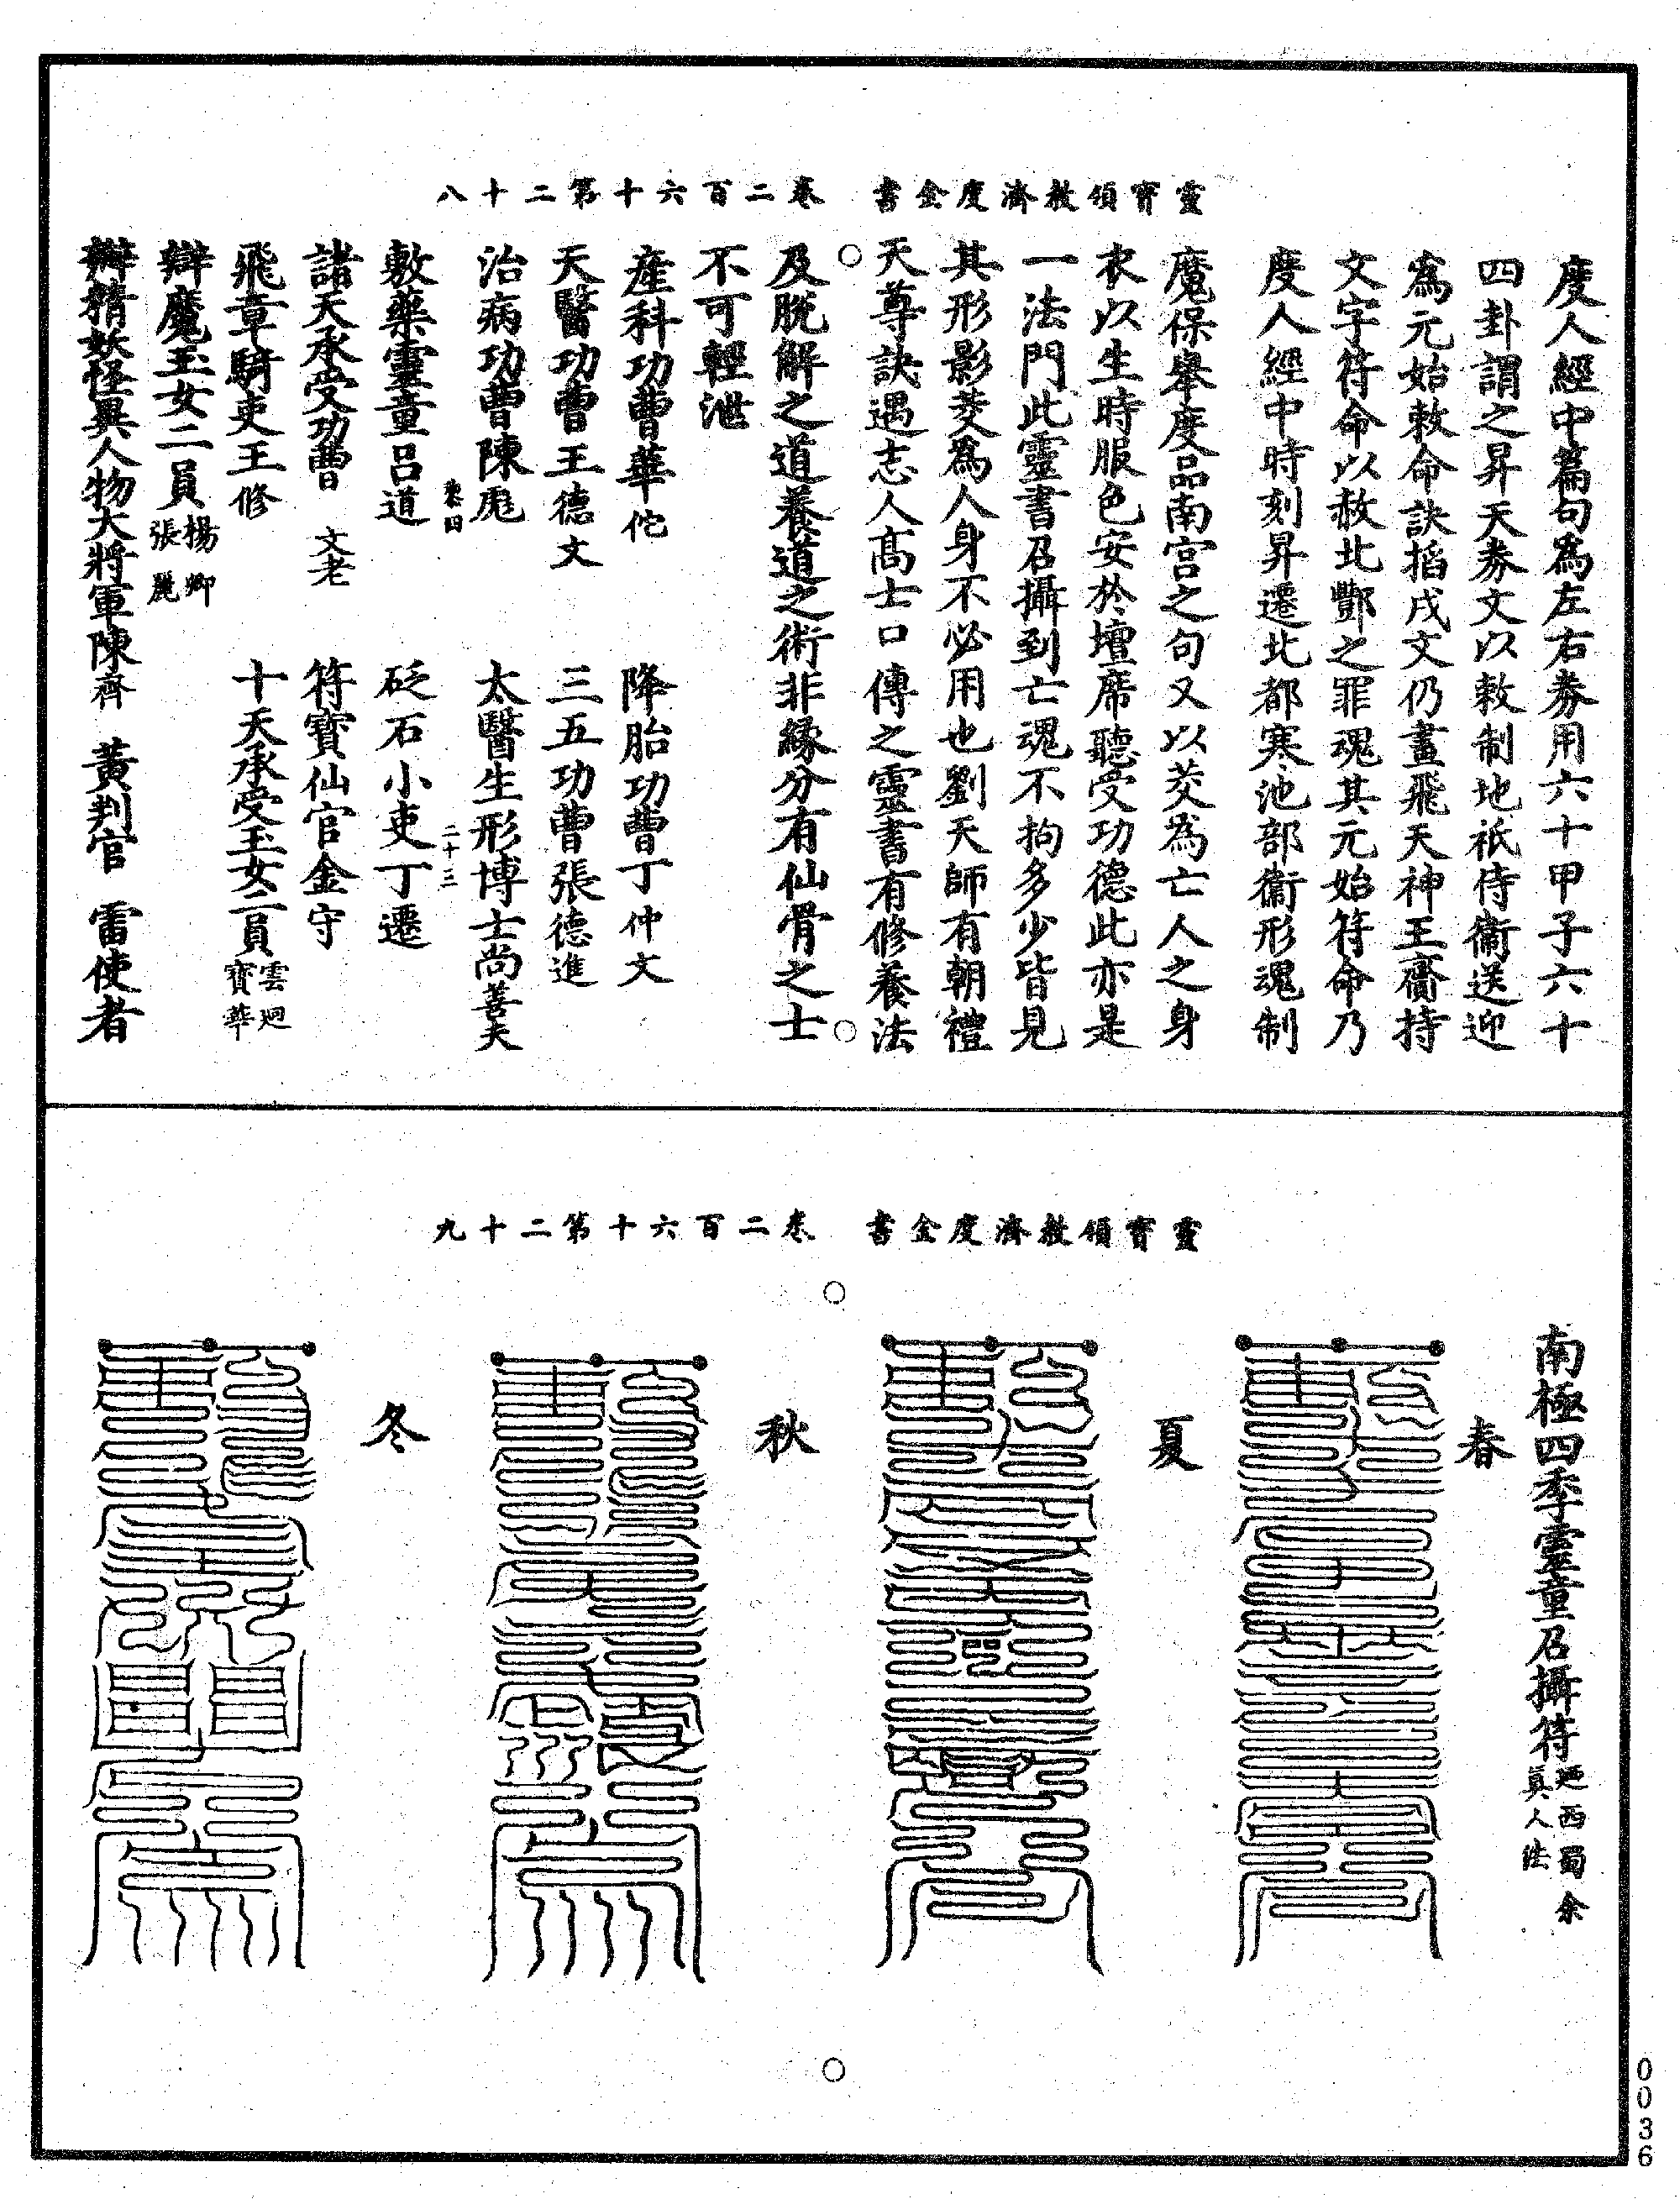 靈寶領教濟度金書　卷二百六十第二十八
度人經中篇句為左右券用六十甲子六十
四卦謂之昇天券文以敕制地祇侍衞送迎
為元始敕命訣搯戌文仍畫飛天神王齎持
文字符命以赦北酆之罪魂其元始符命乃
度人經中時刻昇遷北都寒池部衞形魂制
魔保舉度品南宮之句又以茭為亡人之身
衣以生時服色安於壇席聽受功德此亦是
一法門此靈書召攝到亡魂不拘多少皆見
其形影茭為人身不必用也劉天師有朝禮
天尊訣遇志人高士口傳之靈書有修養法
及脫解之道養道之術非緣分有仙骨之士
不可輕泄
產科功曹華佗　降胎功曹丁仲文
天醫功曹王德文　三五功曹張德進
治病功曹陳彪　太醫生形博士尚善夫
二十三
敷藥靈童呂道　砭石小吏丁遷
諸天承受功曹文老　符寶仙官金守
飛章騎吏王修　十天承受玉女二員雲廻寶華
辯魔玉女二員楊卿張麗
辯精妖怪異人物大將軍陳齊　黃判官　雷使者
靈寶領教濟度金書　卷二百六十第二十九
南極四季靈童召攝符廼西蜀余真人法
春
夏
秋
冬
0036